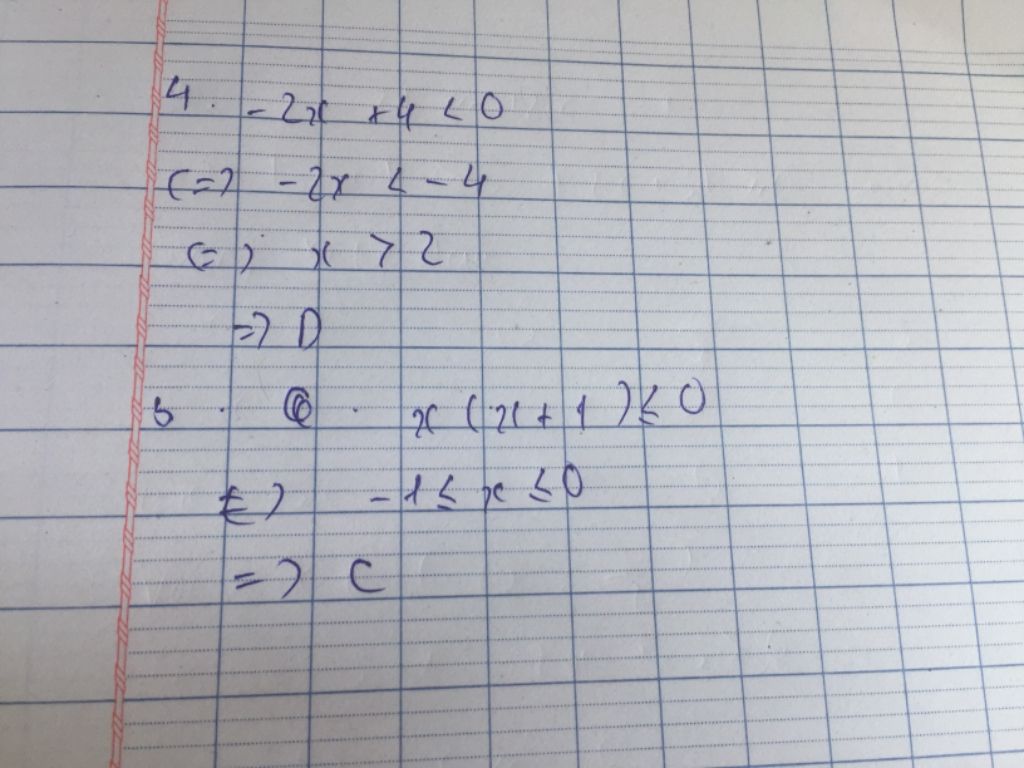 4. -2x +4 < 0
<=> -2x < -4
<=> x > 2
=> D
5. x(x+1) ≤ 0
<=> -1 ≤ x ≤ 0
=> C